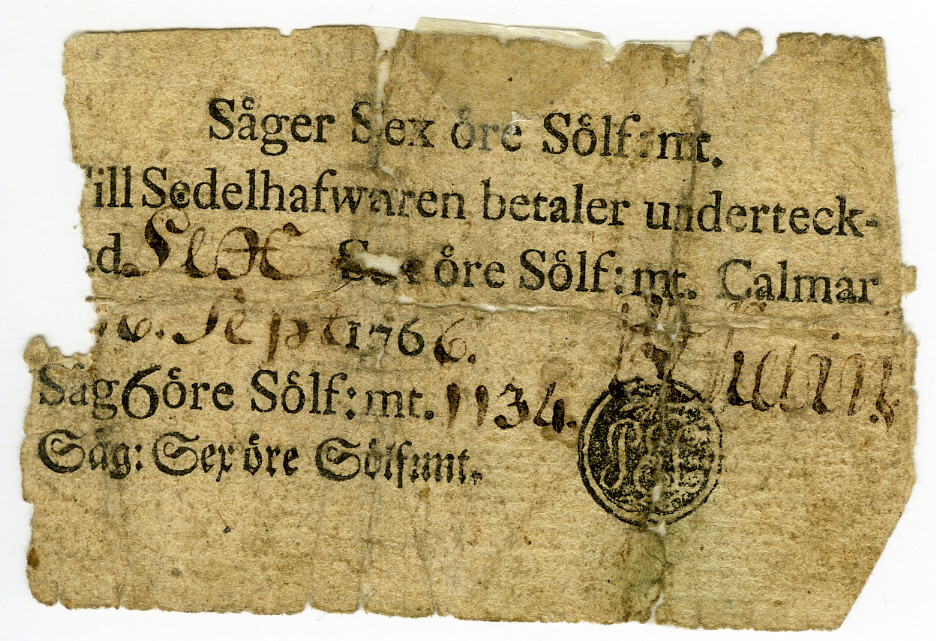 Såger Sex öre Sölf:mt.
ill Sedelhafwaren betaler underteck-
d. Sex Sex öre Sölf:mt. Calmar
6. Sept 1766.
Såg 6 öre Sölf:mt. 1134.
Såg: Sex öre Sölfmt.